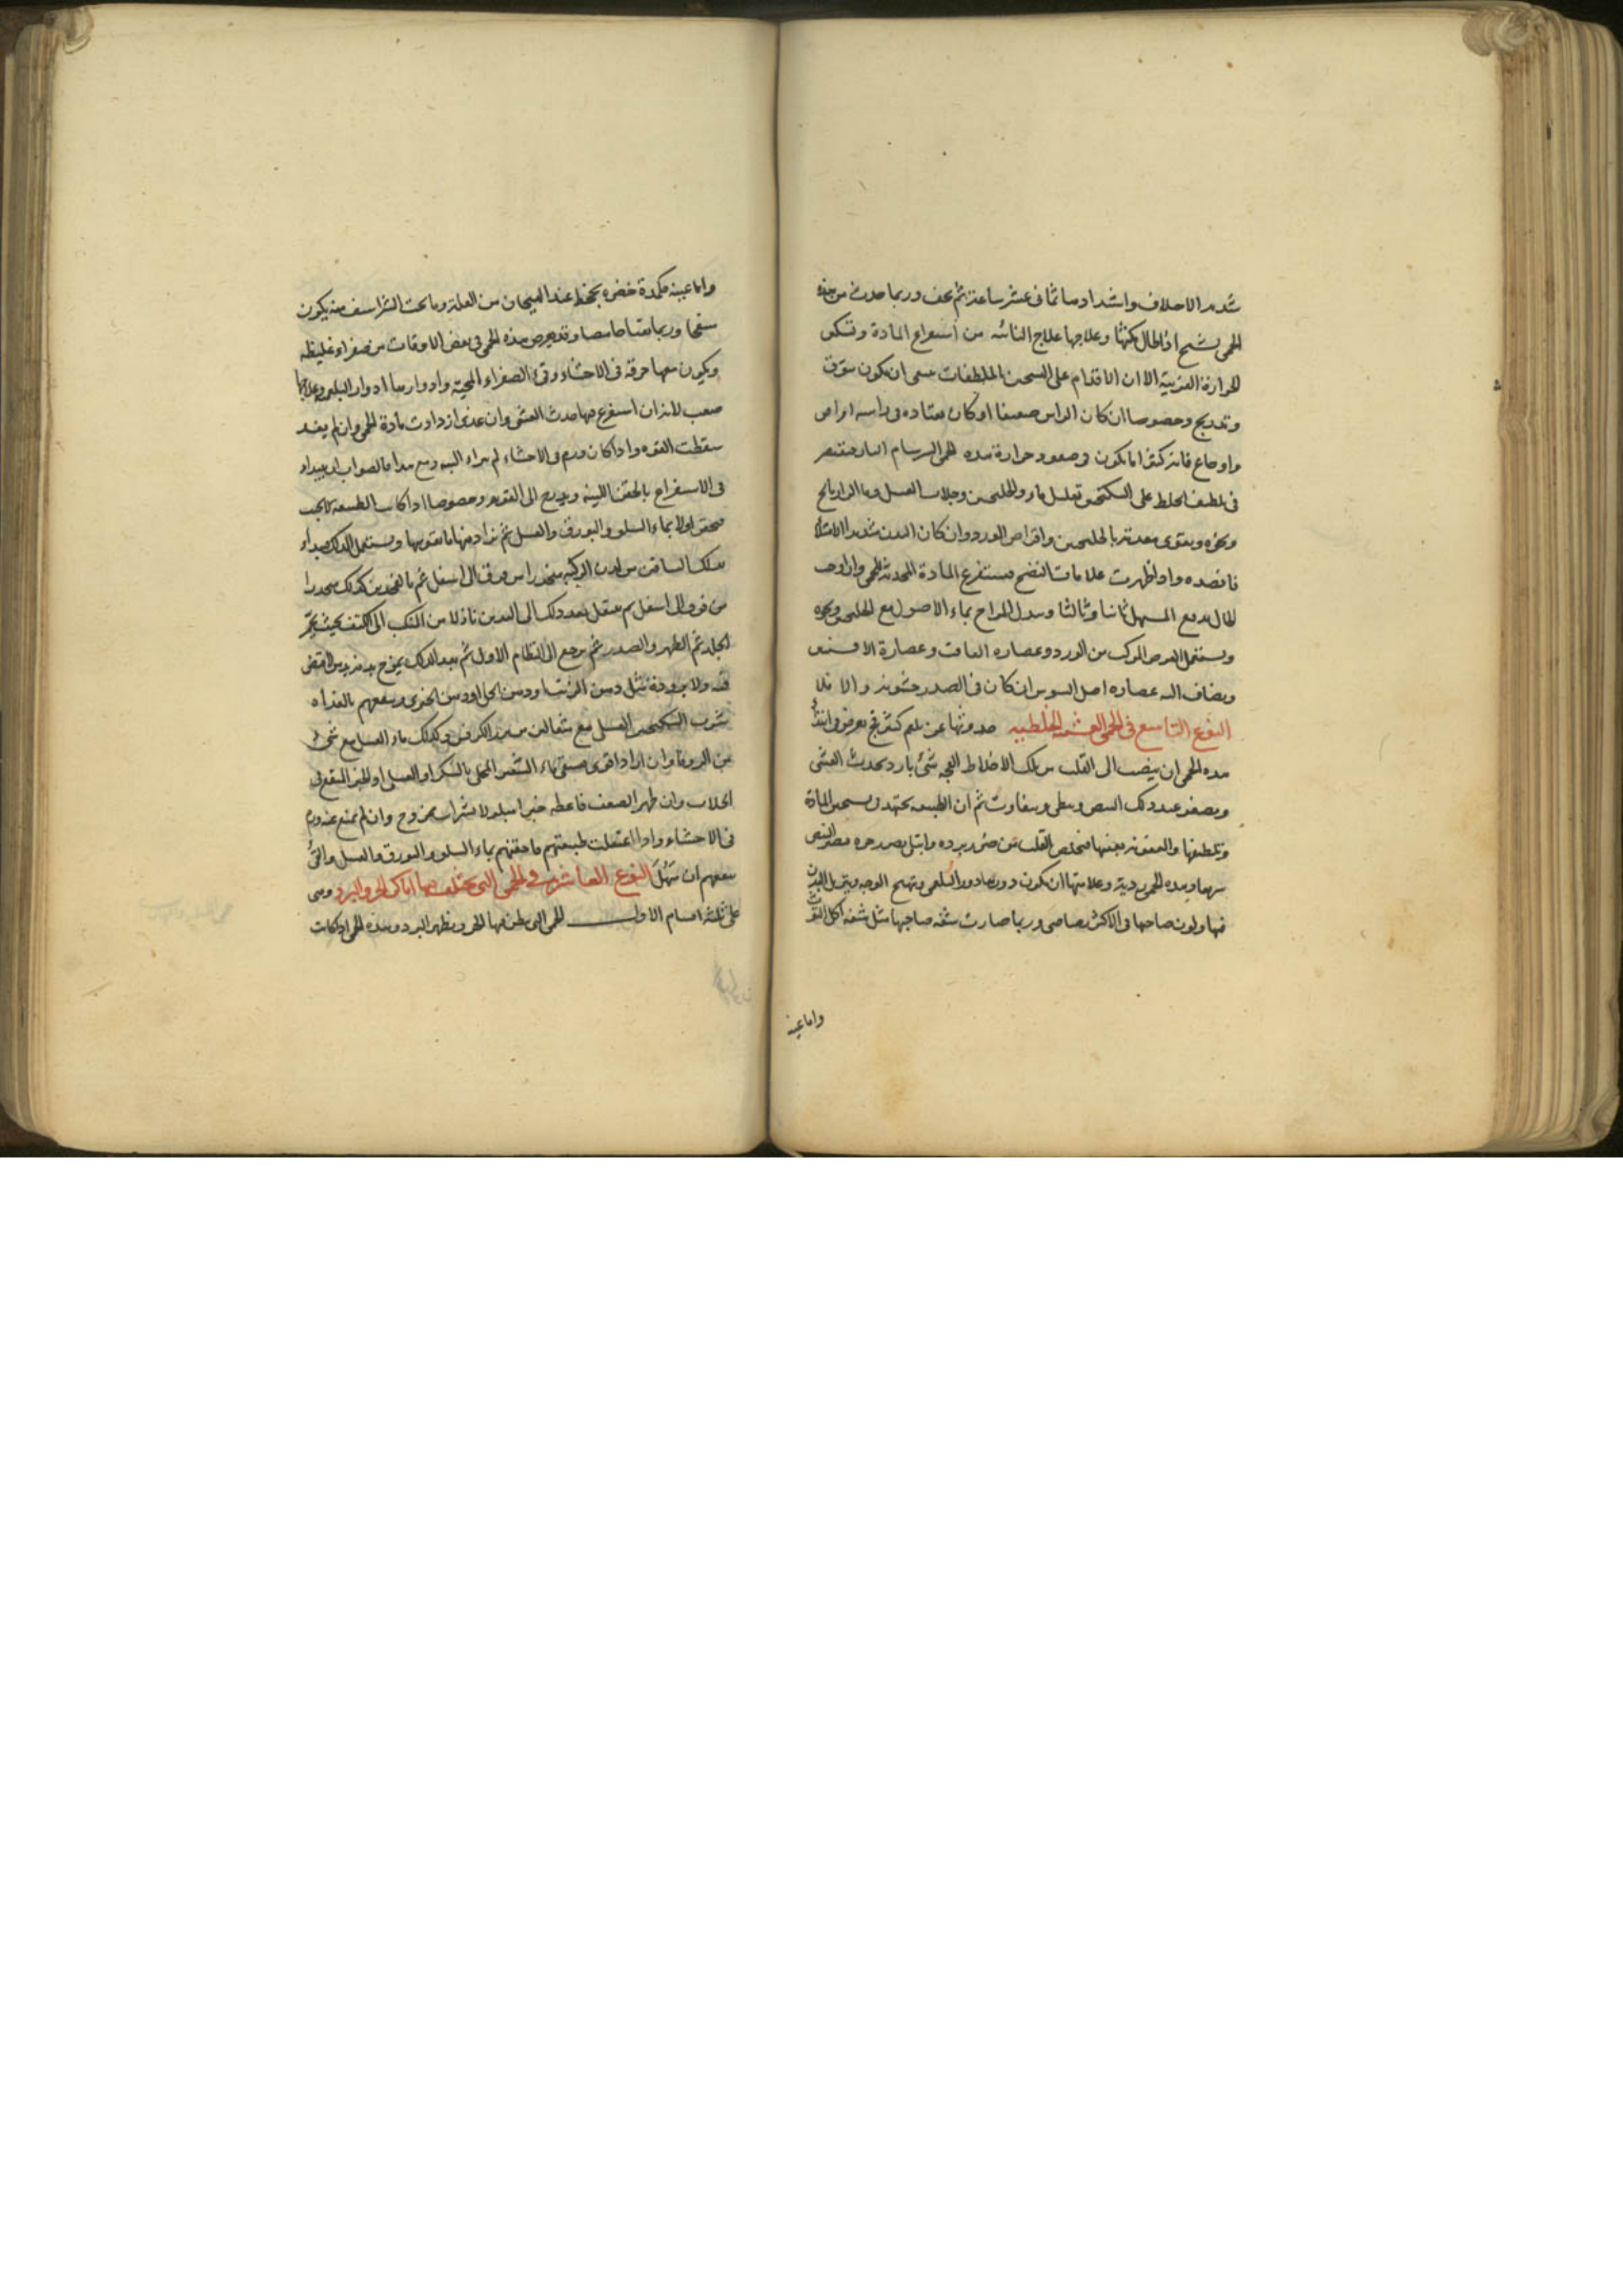 شديد الاختلاف واشتدادها ثمانى عشر ساعة ثم يخف وربما حدث من هذه
الحمى تشنج اذا طال مكثها وعلاجها علاج النائبه من استفراغ المادة وتسكين
الحرارة الغريبة الا ان الاقدام على التسخين الملطفات ينبغى ان يكون بتوق
وتدريج وخصوصا ان كان الراس ضعيفا او كان يعتاده فى راسه امراض
واوجاع فانه كثيرا ما يكون وصعود حرارة هذه الحمى السرسام البارد فيقتصر
فى تلطيف الخلط على السكنجبين بقليل ماء والجلنجبين وجلاب العسل وما الرازيانج
ونحوه ويقوى معدته بالجلنجبين واقراص الورد وان كان البدن شديد الامتلاء
فافصده واذا ظهرت علامات النضج فيستفرغ المادة المحدثة للحمى وان اوجب
الحال يدفع المسهل ثانيا وثالثا ويبدل المزاج بماء الاصول مع الجلنجبين ونحوه
ويستعمل القرص المركب من الورد وعصاره الغافت وعصارة الافسنتين
ويضاف اليه عصاره اصل السوس ان كان فى الصدر خشونه والا فلا
النوع التاسع فى الحمى الغشيه الخلطيه حدوثها عن بلغم كثير فج يعرض فى ابتداء
هذه الحمى ان ينصب الى القلب من تلك الاخلاط الفجه شئ بارد يحدث الغشى
ويصغر عند ذلك النبض ويبطى ويتفاوت ثم ان الطبيعه تجتهد فى تسخين المادة
وتلطيفها والعفونة تعينها فيخلص القلب من ضرر برده وابتلى بضرر حره فيصير النبض
سريعا وهذه الحمى ردية وعلامتها ان يكون دورها دور البلغمى ويتهيج الوجه ويترهل البدن
فيها ولون صاحبها فى الاكثر رصاصى وربما صارت شفة صاحبها مثل شفة اكل التوت
واما عينه
واما عينه فكمدة خضره تجحظ عند الهيجان من العلة وما تحت الشراسيف منه يكون
منتفخا وربما تقيا حامضا وقد يعرض هذه الحمى فى بعض الاوقات من صفراء غليظه
ويكون معها حرقة فى الاحشاء وقئ الصفراء المحية وادوارها ادوار البلغميه وعلاجها
صعب لانه ان استفرغ فيها حدث الغشى وان غذى ازدادت مادة الحمى وان لم يغذ
سقطت القوه واذا كان ورم فى الاحشاء لم يبراء البته ومع هذا فالصواب ان يبداء
فى الاستفراغ بالحقنة اللينه ويدرج الى القويه وخصوصا اذا كانت الطبيعه لا تجيب
فيحقن اولا بماء السلق والبورق والعسل ثم يزاد فيها ما يقويها ويستعمل الدلك فيبداء
بدلك الساقين من لدن الركبه منحدرا من فوق الى اسفل ثم بالفخذين كذلك منحدرا
من فوق الى اسفل ثم ينتقل بعد ذلك الى اليدين نازلا من المنكب الى الكتف بحيث يحمر
الجلد ثم الظهر والصدر ثم يرجع الى النظام الاول ثم بعد الدلك يمرخ بدنه بدهن لا قبض
فيه ولا برودة مثل دهن الزيت او دهن الحل او دهن الخيرى وينفعهم بالغداه
شرب السكنجبين العسلى مع مثقالين من بزر الكرفس وكذلك ماء العسل مع شئ
من الزوفا وان اراد اقوى فيسقى ماء الشعير المحلى بالسكر او العسل او الخبز المنقع فى
الجلاب وان ظهر الضعف فاعطه خبزا مبلولا بشراب ممزوج وان لم يمنع عنه ورم
فى الاحشاء واذا اعتقلت طبيعتهم فاحقنهم بماء السلق والبورق والعسل والقئ
ينفعهم ان سهل النوع العاشر فى الحمى التى يختلف فيها اماكن الحر والبرد وهى
على ثلثة اقسام الاول الحمى التى يبطن فيها الحر ويظهر البرد وهذه الحمى اذا كانت